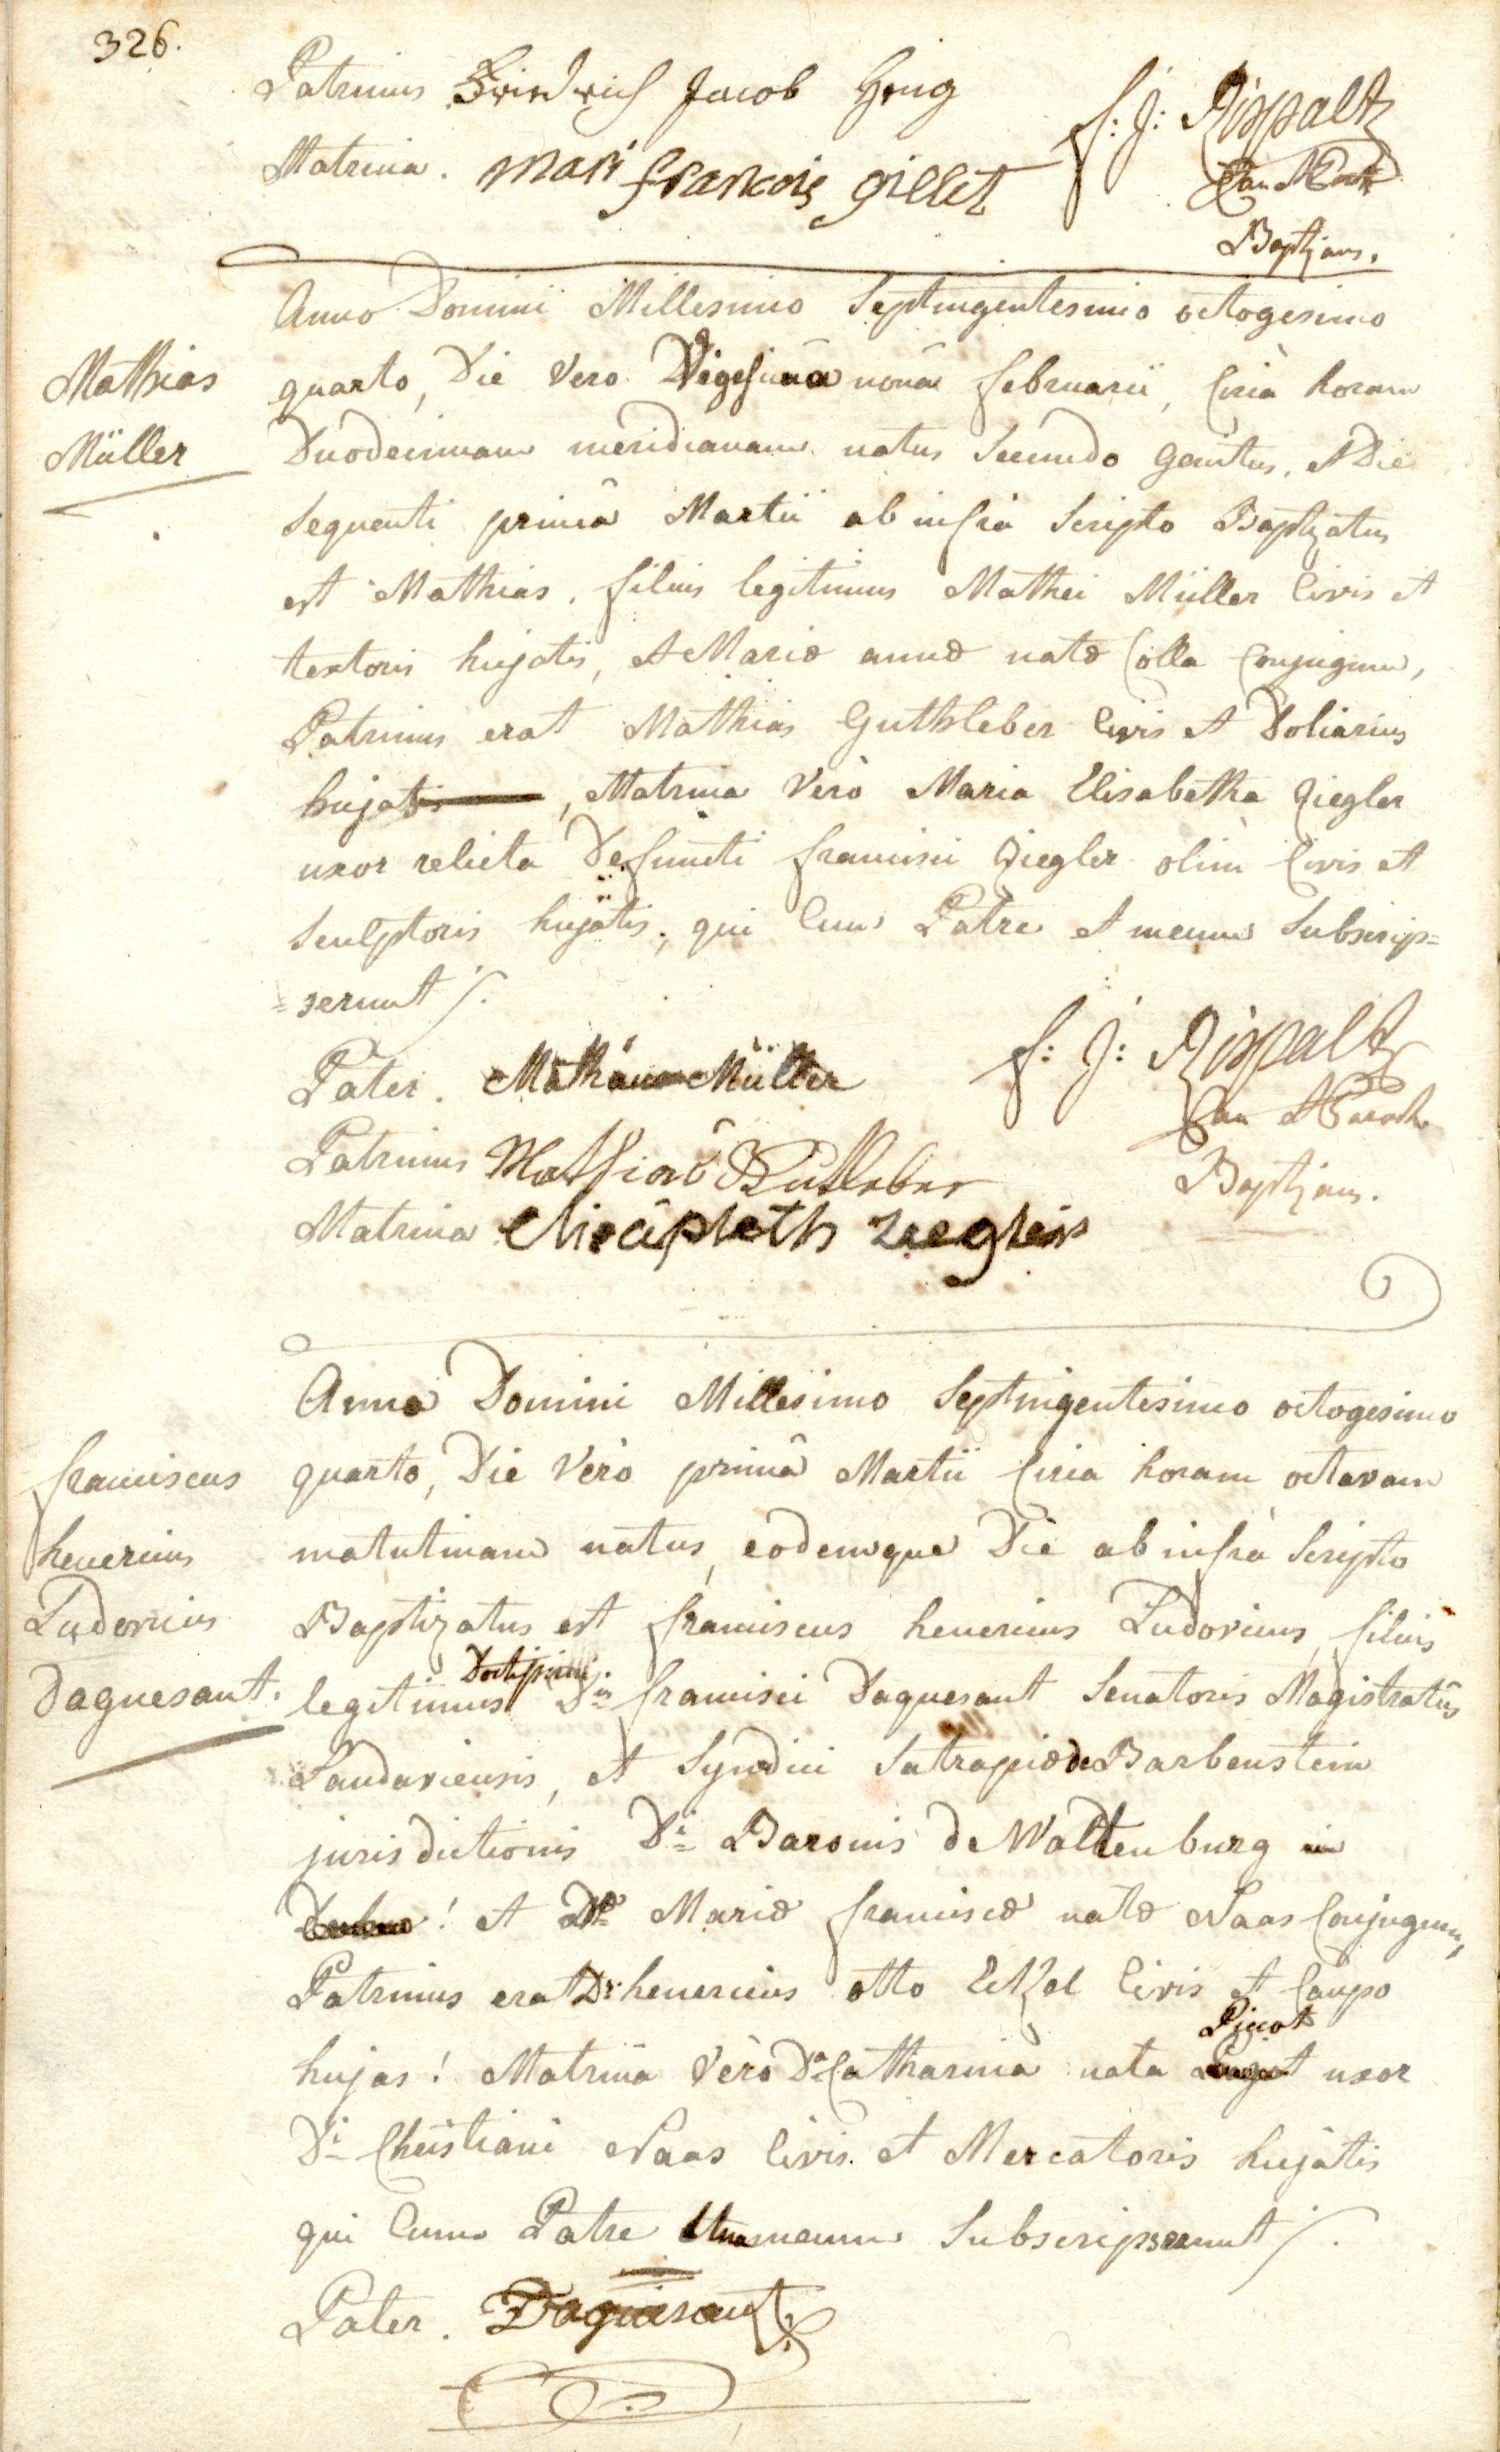 326.
Patrinus Friedrich Jacob
Matrina. Mari francois gillet
f: J: Rispaltz
Baptizans.
Anno Domini Millesimo Septingentesimo octogesimo
Mathias
Müller
quarto, Die Vero Vigesimâ nonâ februarii, Circà horam
Duodecimam meridianam natus Secundo genitus, et Die
Sequenti primâ Martii ab infrà Scripto Baptizatus
est Mathias, filius legitimus Mathei Müller Civis et
textoris hujatis, et Mariæ annæ natæ Colla Conjugum,
Patrinus erat Mathias Guthleber Civis et Doliarius
hujatis, Matrina Verò Maria Elisabetha Ziegler
uxor relicta Defuncti francisci Ziegler olim Civis et
Sculptoris hujatis, qui Cum Patre et mecum Subscrip=
=serunt /.
Pater. Müller
f: J: Rispaltz
Can Paroch
Baptizans.
Patrinus Mathias Gutleber
Matrina Elisapleth Zieglein
Anno Domini Millesimo Septingentesimo octogesimo
franciscus
henericus
Ludovicus
Daguesant.
quarto, Die Verò primâ Martii Circa horam octavam
matutinam natus, eodemque Die ab infrà Scripto
Baptizatus est franciscus henericus Ludovicus, filius
legitimus Doctissimi Dni francisci Daguesant Senatoris Magistratûs
Landaviensis, et Syndici Satrapiæ de Barbenstein
jurisdictionis Di Baronis de Waltenburg in
! et Dæ Mariæ franciscæ natæ Naas Conjugum,
Patrinus erat Ds henericus otto Etzel Civis et Caupo
hujas! Matrina Verò Da Catharina nata Picot uxor
Di Christiani Naas Civis et Mercatoris hujâtis
qui Cum Patre Una mecum Subscripserunt /.
Pater. Daguesant